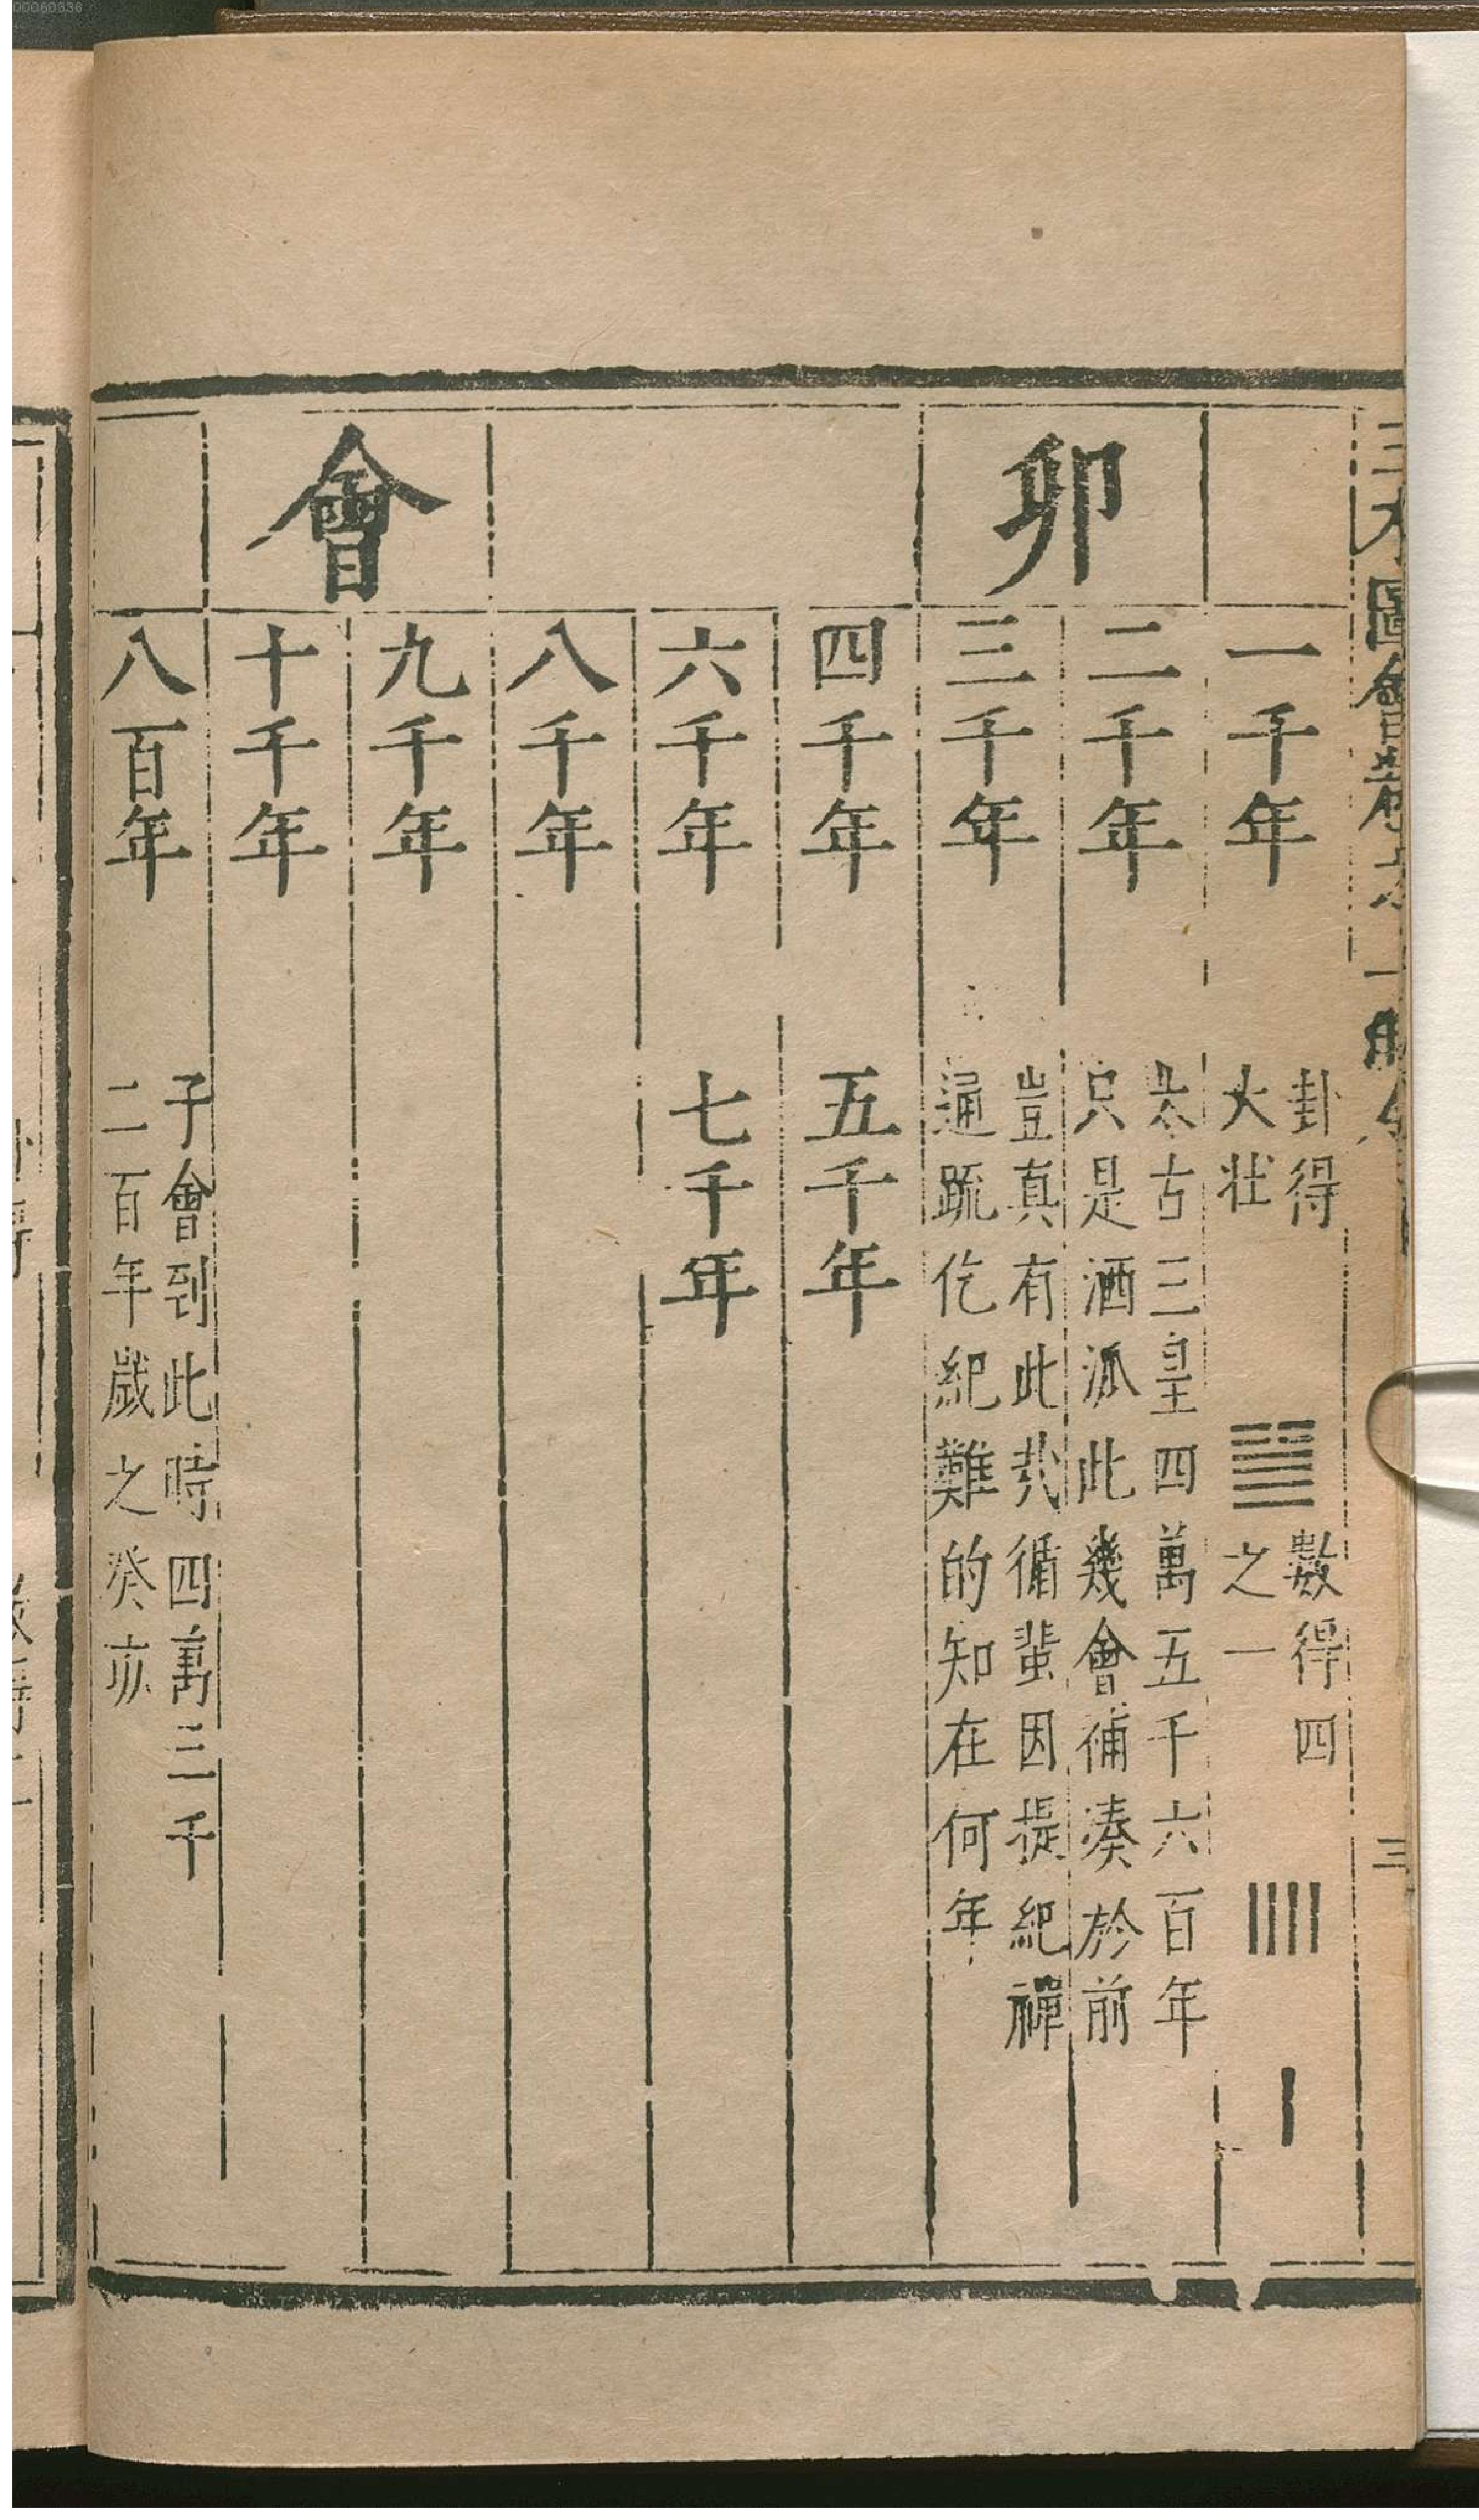 00060336
卯會
一千年
卦得
大壯
數得四
之一
二千年
太古三皇四萬五千六百年
只是酒派此幾會補湊於前
三千年
豈真有此哉循蜚因提紀禪
通疏仡紀難的知在何年
四千年
五千年
六千年
七千年
八千年
九千年
十千年
八百年
子會到此時四萬三千
二百年歲之癸亥